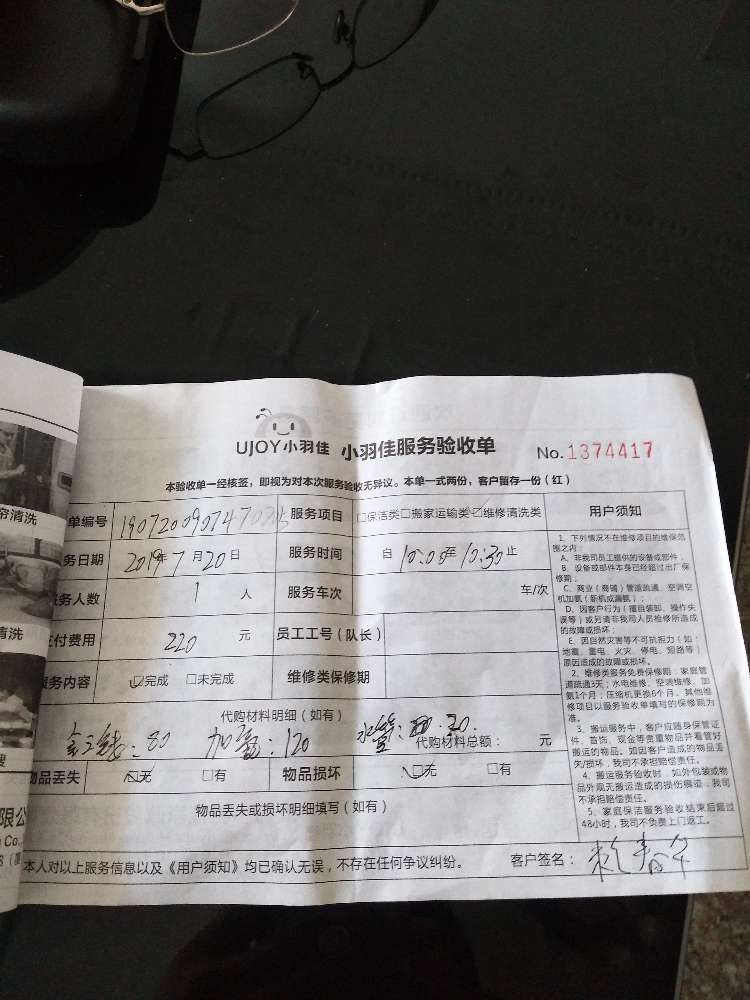 UJOY小羽佳 小羽佳服务验收单 No.1374417
本验收单一经核签，即视为对本次服务验收无异议。本单一式两份，客户留存一份（红）
单编号 服务项目 □保洁类□搬家运输类☑维修清洗类
务日期 2019年7月20日 服务时间 自10:00至10:30止
务人数 1人 服务车次 车/次
付费用 220元 员工工号（队长）
服务内容 ☑完成 □未完成 维修类保修期
代购材料明细（如有）
:80 加氨:120
代购材料总额： 元
物品丢失 ☑无 □有 物品损坏 ☑无 □有
物品丢失或损坏明细填写（如有）
本人对以上服务信息以及《用户须知》均已确认无误，不存在任何争议纠纷。 客户签名：
用户须知
1、下列情况不在维修项目的维保范
围之内：
A、非我司员工提供的设备或部件；
B、设备或部件本身已经超过出厂保
修期；
C、商业（商铺）管道疏通、空调空
机加氨（新机或漏氨）；
D、因客户行为（擅自装卸、操作失
误等）或另请非我司人员检修所造成
的故障或损坏；
E、因自然灾害等不可抗拒力（如：
地震、雷电、火灾、停电、短路等）
原因造成的故障或损坏。
2、维修类服务免费保修期：家庭管
道疏通3天；水电维修、空调维修、加
氨1个月；压缩机更换6个月。其他维
修项目以服务验收单填写的保修期为
准。
3、搬运服务中，客户应随身保管证
件、首饰、现金等贵重物品并看管好
搬运的物品。如因客户造成的物品丢
失/损坏，我司不承担赔偿责任。
4、搬运服务验收时，如外包装或物
品外观无搬运造成的损伤痕迹，我司
不承担赔偿责任。
5、家庭保洁服务验收结束后超过
48小时，我司不负责上门返工。
帘清洗
清洗
限公
Co.,